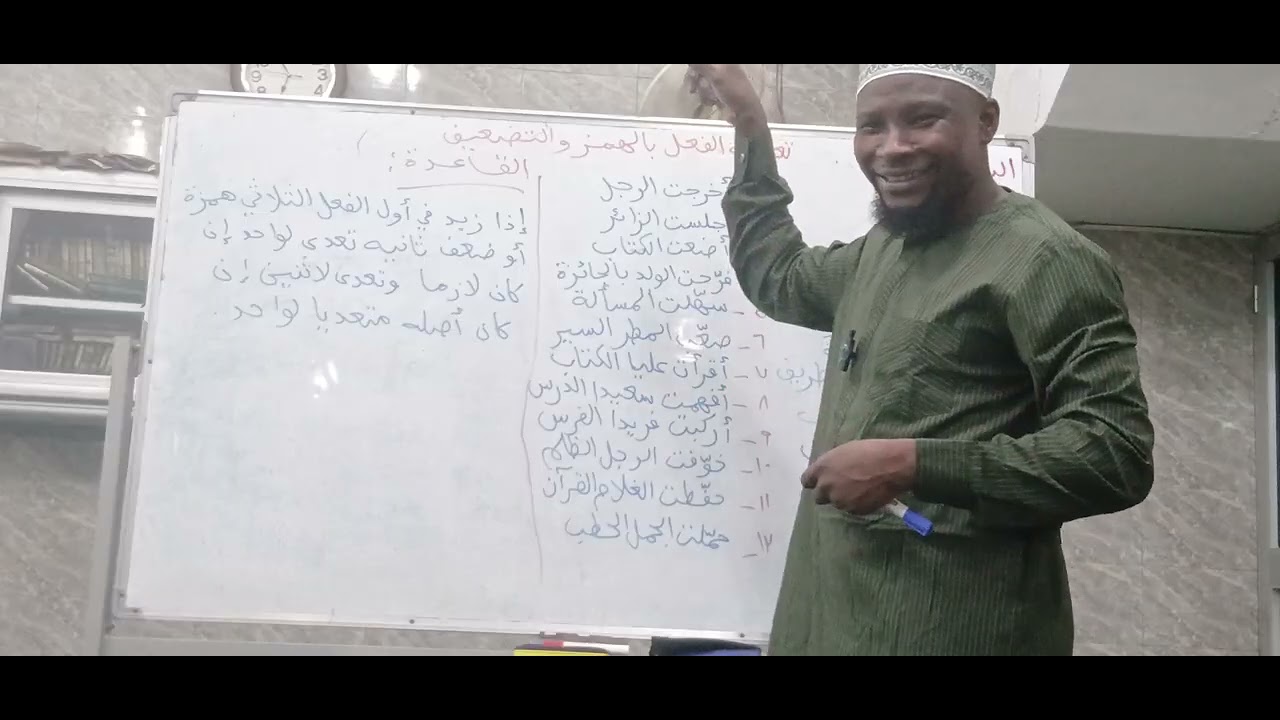 الفعل بالهمز والتضعيف
أخرجت الرجل
جلست الزائر
أضعت الكتاب
فرّحت الولد بالجائزة
سهّلت المسألة
٦- المطر السير
٧- أقرأت عليا الكتاب
٨- أفهمت سعيدا الدرس
٩- أركبت فريدا الفرس
١٠- خوّفت الرجل الظالم
١١- حفّظت الغلام القرآن
١٢- حمّلت الجمل الحطب
القاعدة:
إذا زيد في أول الفعل الثلاثي همزة
أو ضعف ثانيه تعدى لواحد إن
كان لازما وتعدى لاثنين إن
كان أصله متعديا لواحد.
9
3
8
4